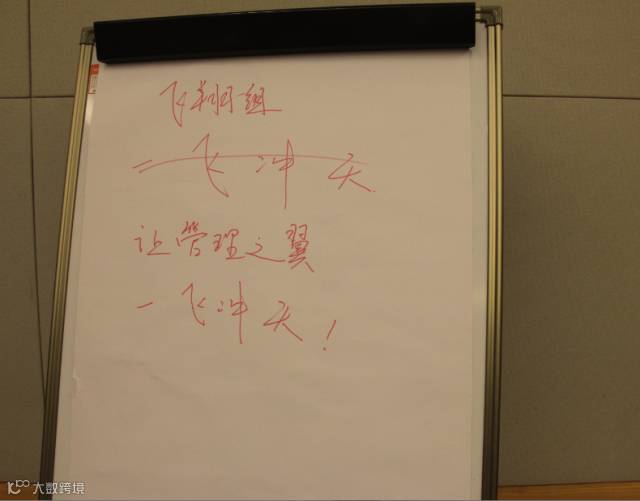 飞翔组
一飞冲天
让管理之翼
一飞冲天！
大数跨境